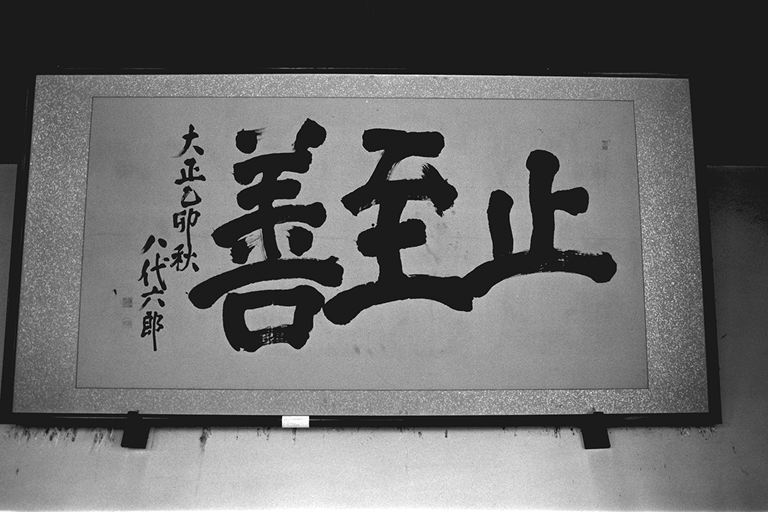 止至善
大正乙卯秋
八代六郎